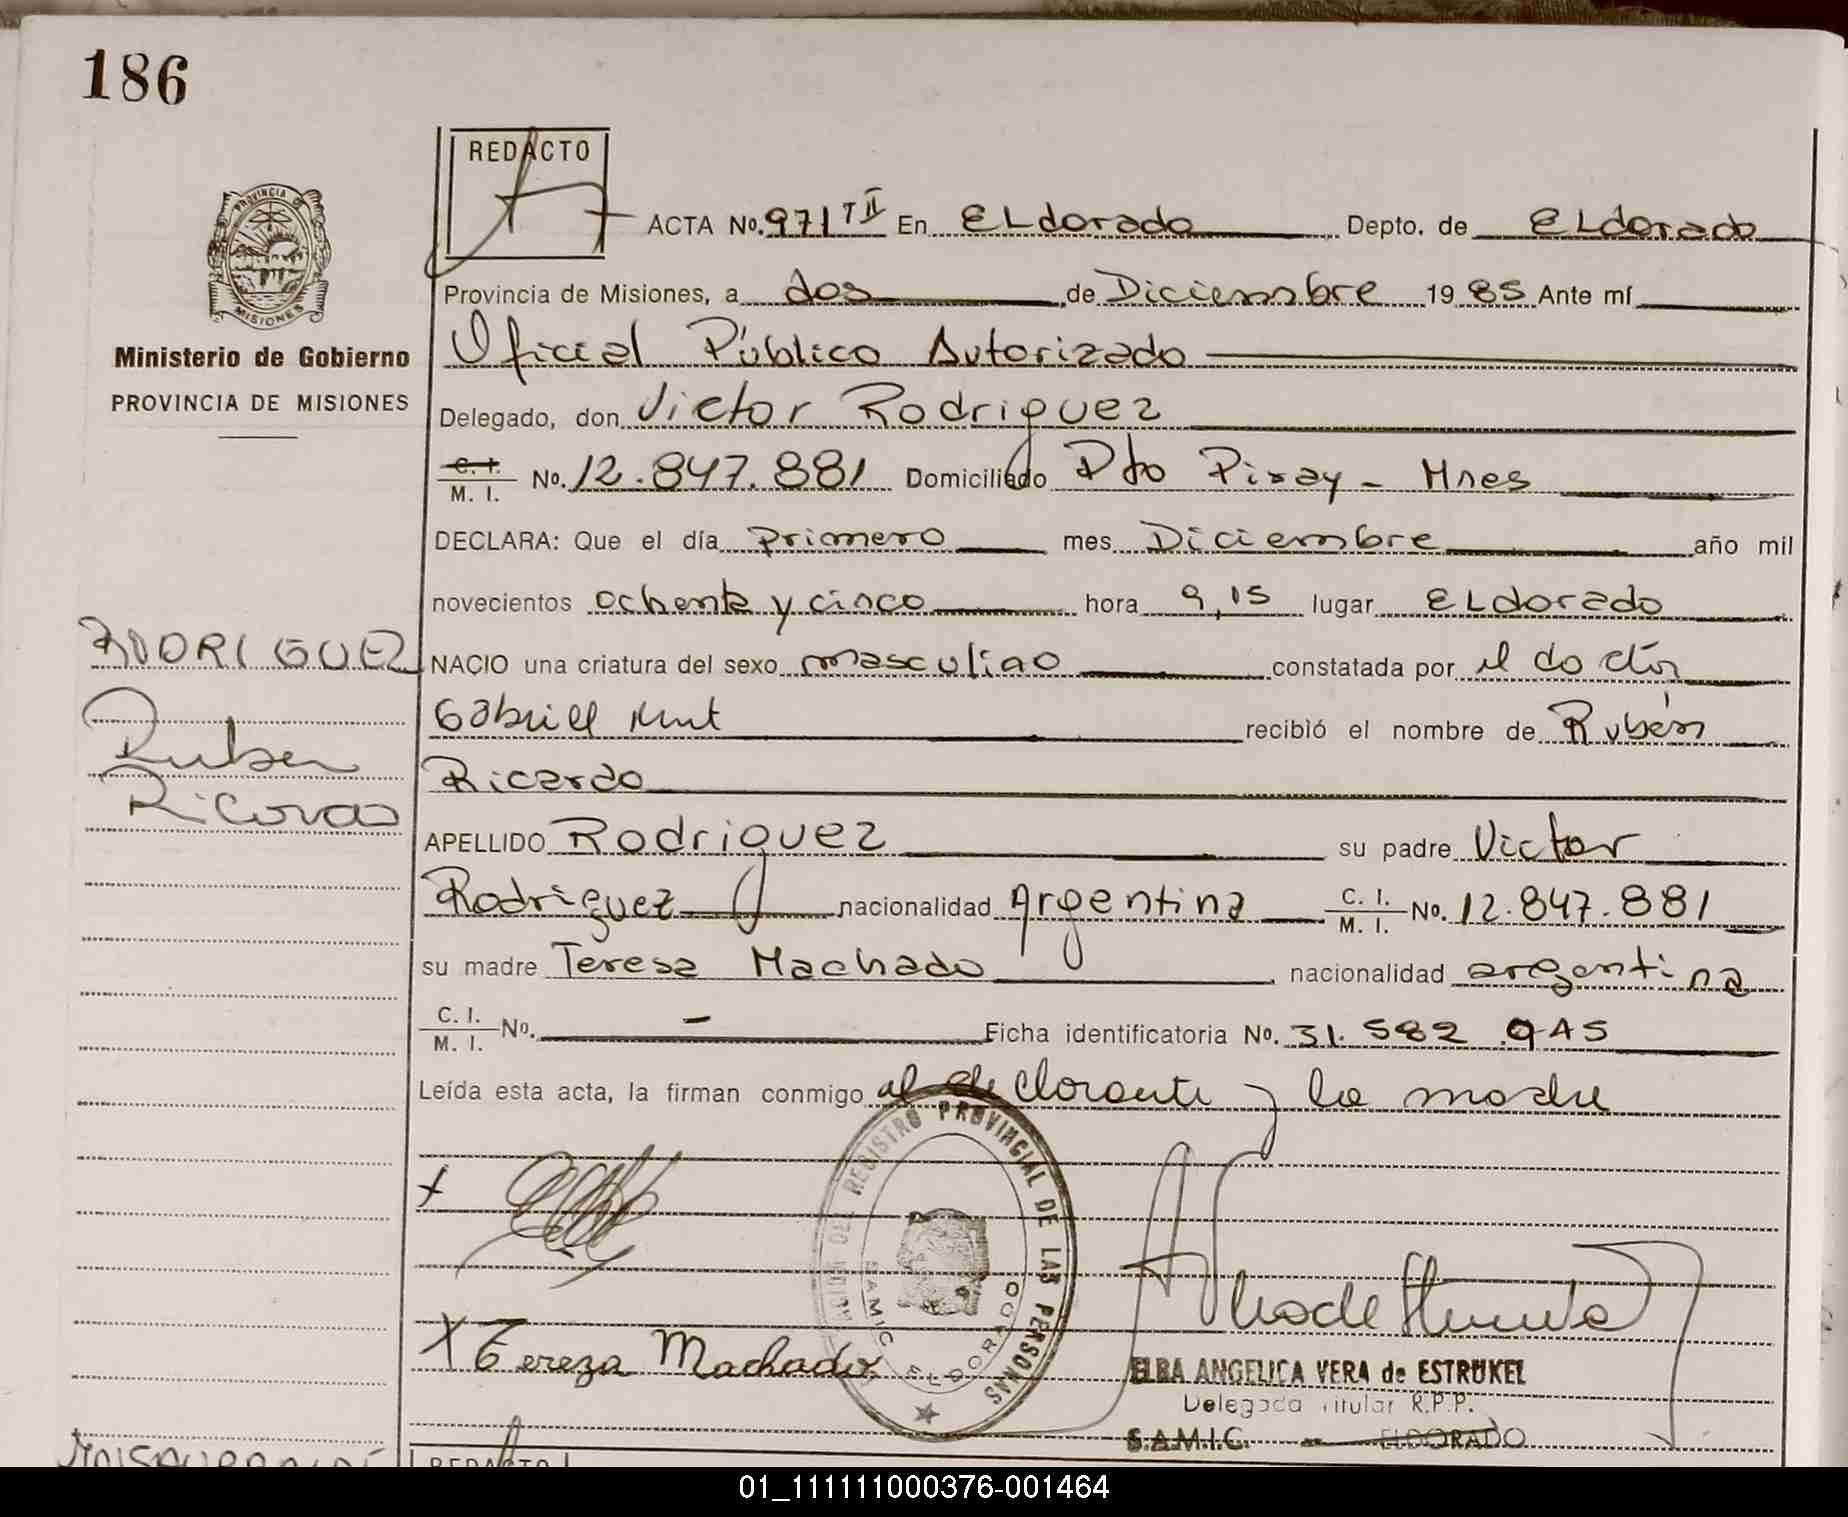 186
REDACTO
PROVINCIA DE
MISIONES
Ministerio de Gobierno
PROVINCIA DE MISIONES
RODRIGUEZ
Ruben
Ricardo
ACTA No. 971 T II En ELdorado Depto. de ELdorado
Provincia de Misiones, a dos de Diciembre 1985 Ante mí
Oficial Público Autorizado
Delegado, don Victor Rodriguez
C. I. M. I. No. 12.847.881 Domiciliado Pto Piray - Mnes
DECLARA: Que el día primero mes Diciembre año mil
novecientos ochenta y cinco hora 9,15 lugar ELdorado
NACIO una criatura del sexo masculino constatada por el doctor
Gabriel recibió el nombre de Rubén
Ricardo
APELLIDO Rodriguez su padre Victor
Rodriguez nacionalidad Argentina C. I. M. I. No. 12.847.881
su madre Teresa Machado nacionalidad argentina
C. I. M. I. No. - Ficha identificatoria No. 31.582.945
Leída esta acta, la firman conmigo el declarante y la madre
REGISTRO PROVINCIAL DE LAS PERSONAS
SAMIC ELDORADO
X Tereza Machado
ELBA ANGELICA VERA de ESTRUKEL
Delegada Titular R.P.P.
S.A.M.I.C. - ELDORADO
REDACTO
01_111111000376-001464